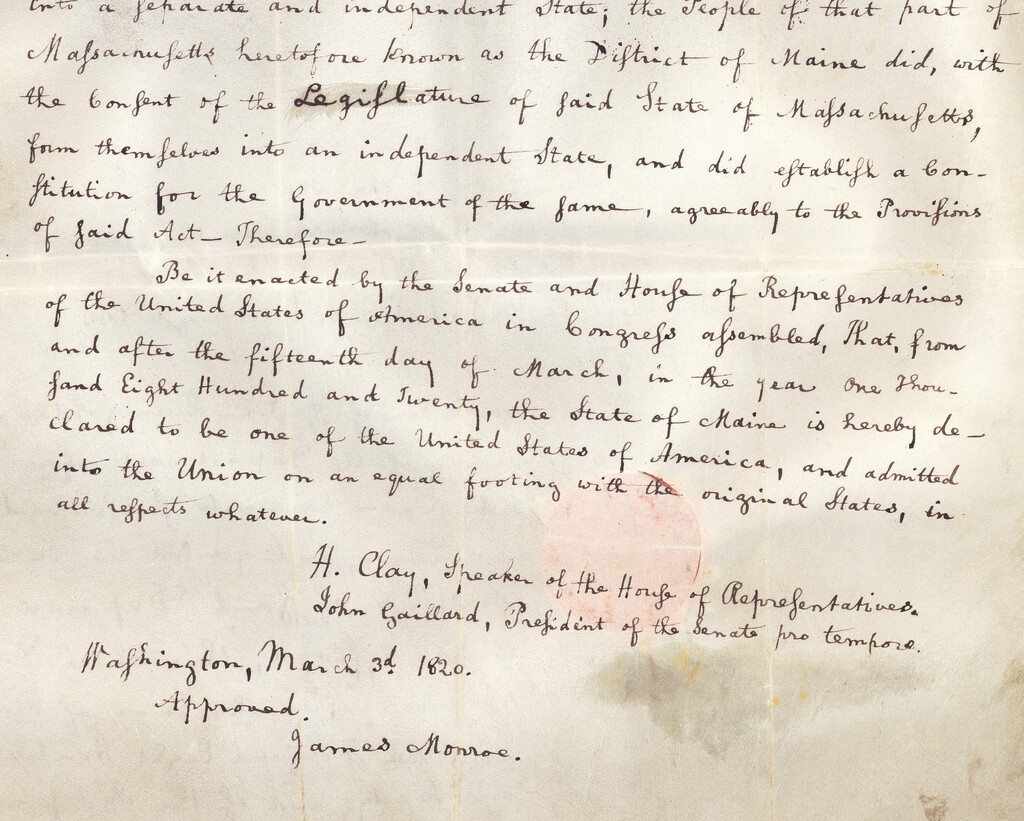 into a separate and independent State; the People of that part of
Maſsachuſetts heretofore known as the Diſtrict of Maine did, with
the Conſent of the Legiſlature of ſaid State of Maſsachuſetts,
form themſelves into an independent State, and did eſtabliſh a Con-
ſtitution for the Government of the ſame, agreeably to the Proviſions
of ſaid Act— Therefore—
Be it enacted by the Senate and Houſe of Repreſentatives
of the United States of America in Congreſs aſsembled, That, from
and after the fifteenth day of March, in the year One Thou-
ſand Eight Hundred and Twenty, the State of Maine is hereby de-
clared to be one of the United States of America, and admitted
into the Union on an equal footing with the original States, in
all reſpects whatever.
H. Clay, Speaker of the Houſe of Repreſentatives.
John Gaillard, Preſident of the Senate pro tempore.
Waſhington, March 3d 1820.
Approved.
James Monroe.